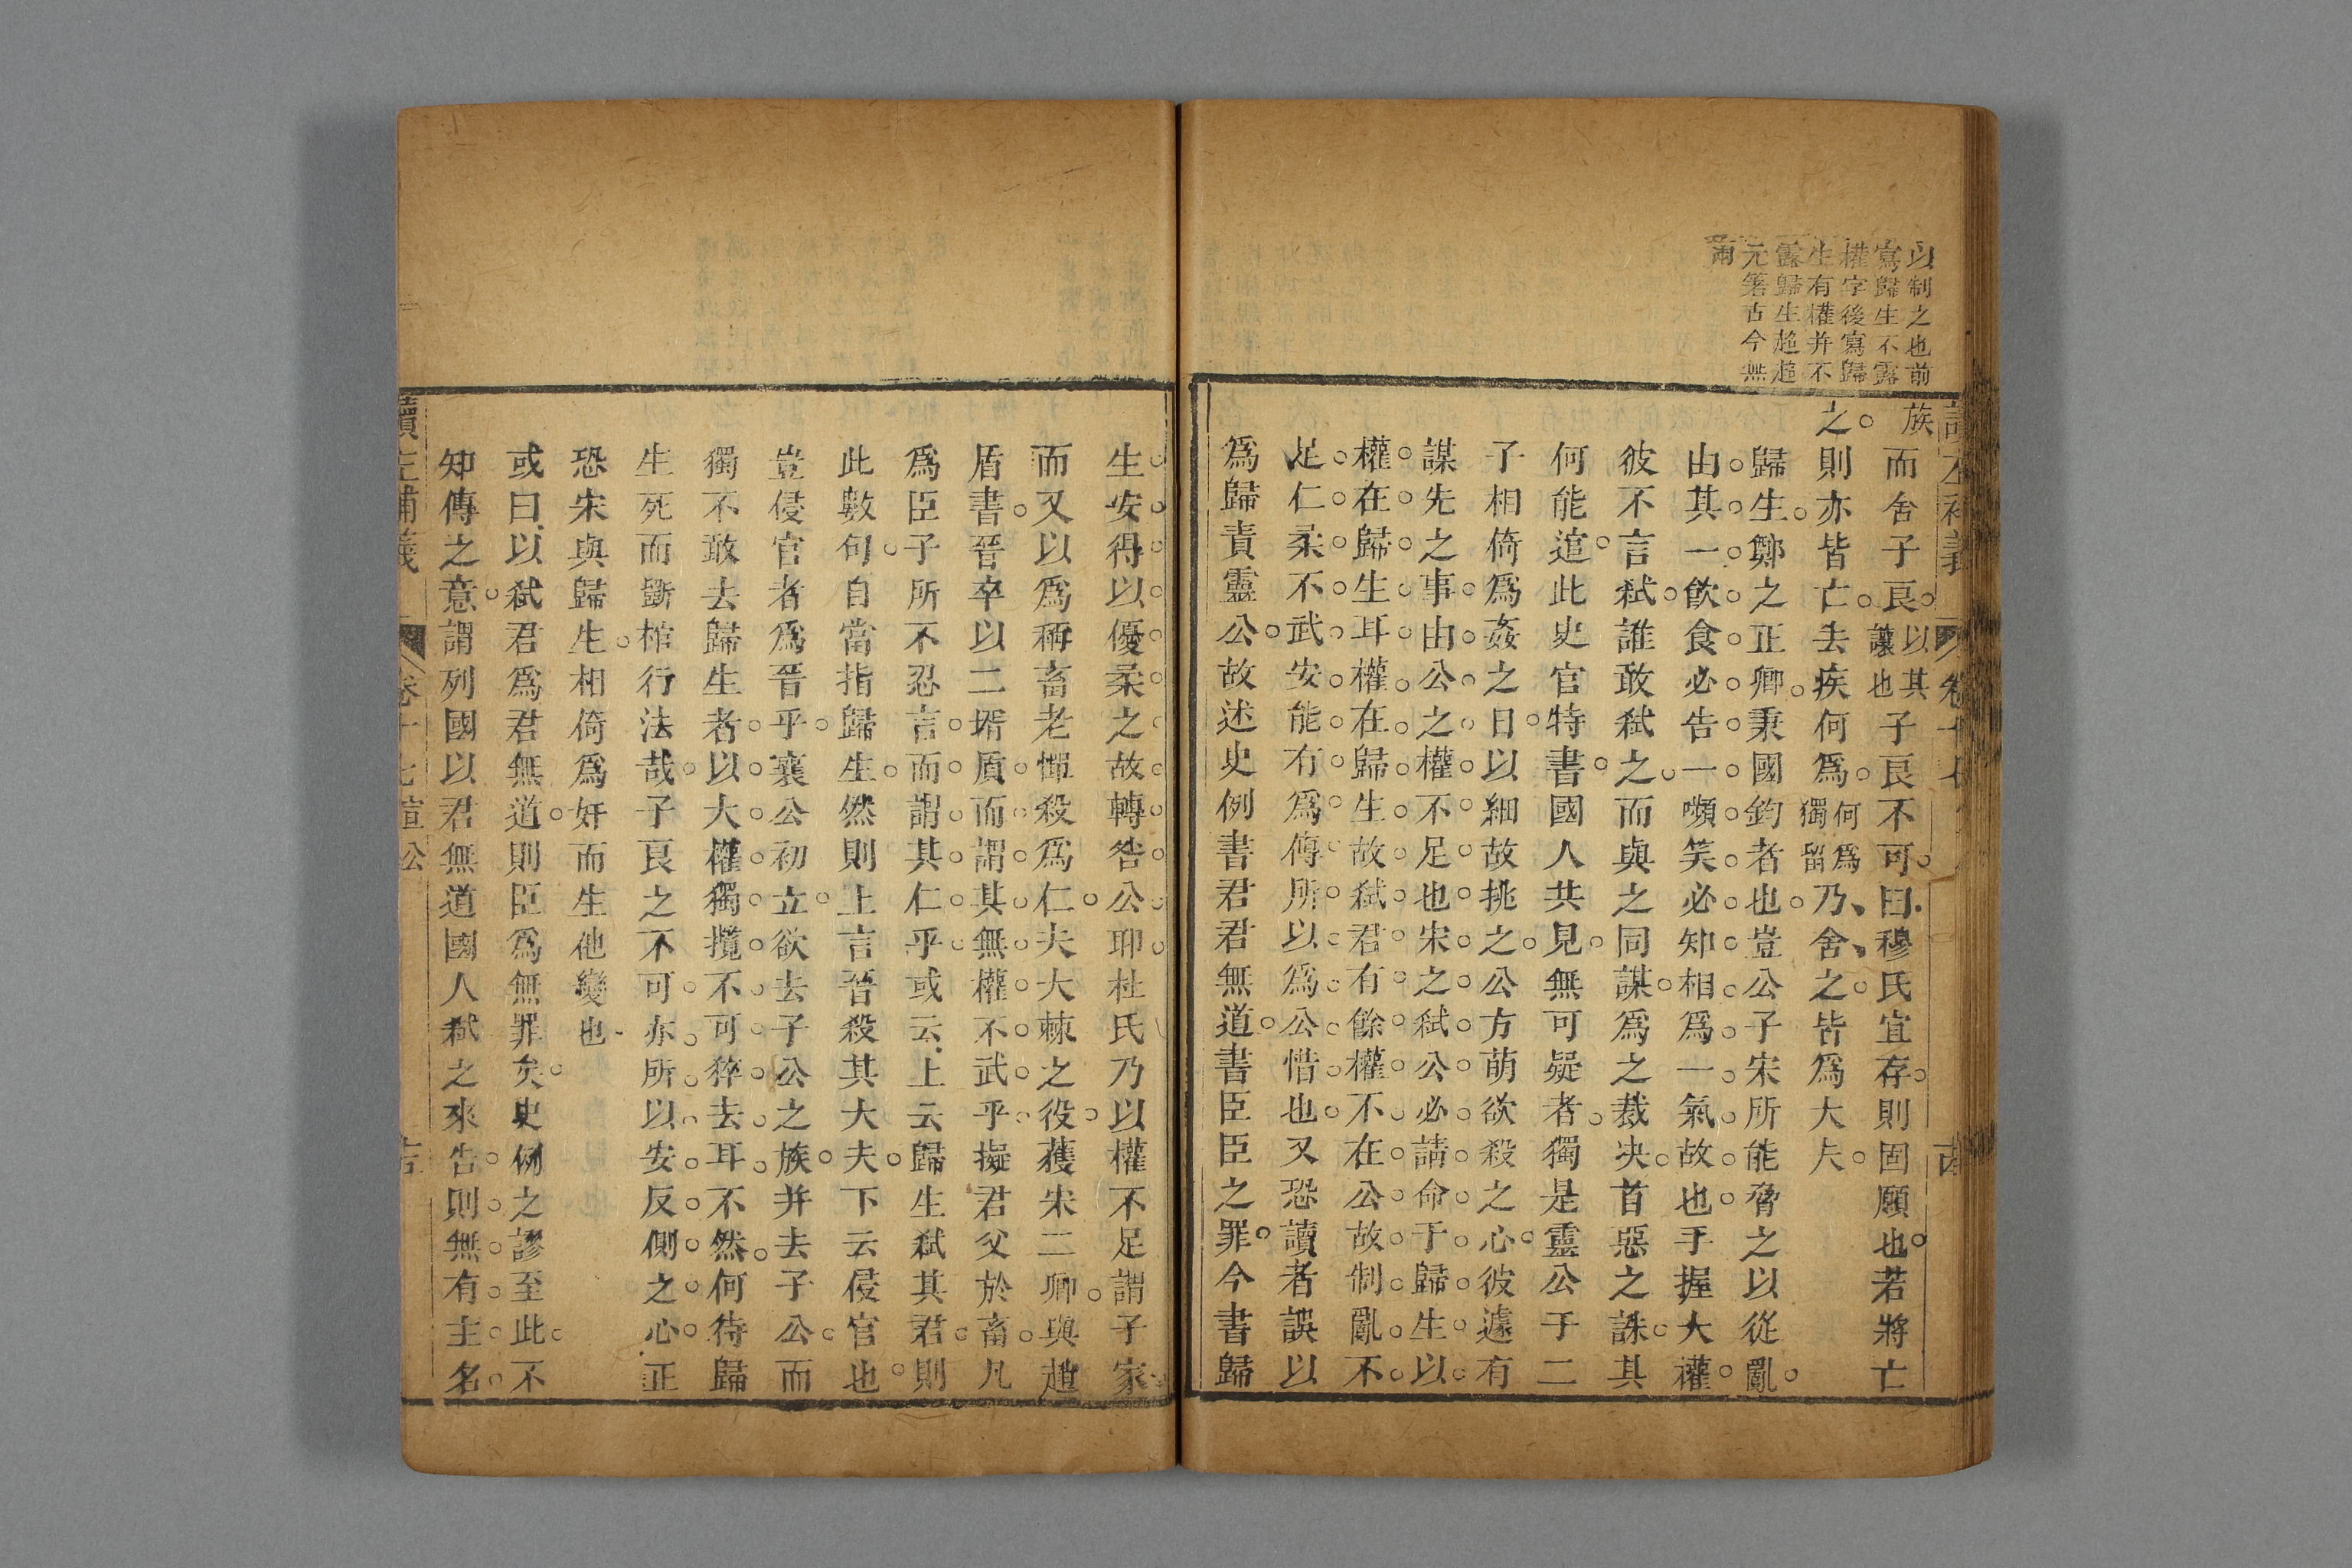 以制之也前
寫歸生不露
權字後寫歸
生有權并不
露歸生趙趙
元箸古今無
兩
族而舍子良以其讓也子良不可曰穆氏宜存則固願也若將亡
之則亦皆亡去疾何爲何爲獨留乃舍之皆爲大夫
歸生鄭之正卿秉國鈞者也豈公子宋所能脅之以從亂
由其一飲食必告一嚬笑必知相爲一氣故也手握大權
彼不言弑誰敢弑之而與之同謀爲之裁決首惡之誅其
何能逭此史官特書國人共見無可疑者獨是靈公于二
子相倚爲姦之日以細故挑之公方萌欲殺之心彼遽有
謀先之事由公之權不足也宋之弑公必請命于歸生以
權在歸生耳權在歸生故弑君有餘權不在公故制亂不
足仁柔不武安能有爲傳所以爲公惜也又恐讀者誤以
爲歸責靈公故述史例書君君無道書臣臣之罪今書歸
生安得以優柔之故轉咎公耶杜氏乃以權不足謂子家
而又以爲稱畜老憚殺爲仁夫大棘之役獲宋二卿與趙
盾書晉卒以二壻質而謂其無權不武乎擬君父於畜凡
爲臣子所不忍言而謂其仁乎或云上云歸生弑其君則
此數句自當指歸生然則上言晉殺其大夫下云侵官也
豈侵官者爲晉乎襄公初立欲去子公之族并去子公而
獨不敢去歸生者以大權獨攬不可猝去耳不然何待歸
生死而斲棺行法哉子良之不可亦所以安反側之心正
恐宋與歸生相倚爲奸而生他變也
或曰以弑君爲君無道則臣爲無罪矣史例之謬至此不
知傳之意謂列國以君無道國人弑之來告則無有主名
讀左補義
卷十七宣公